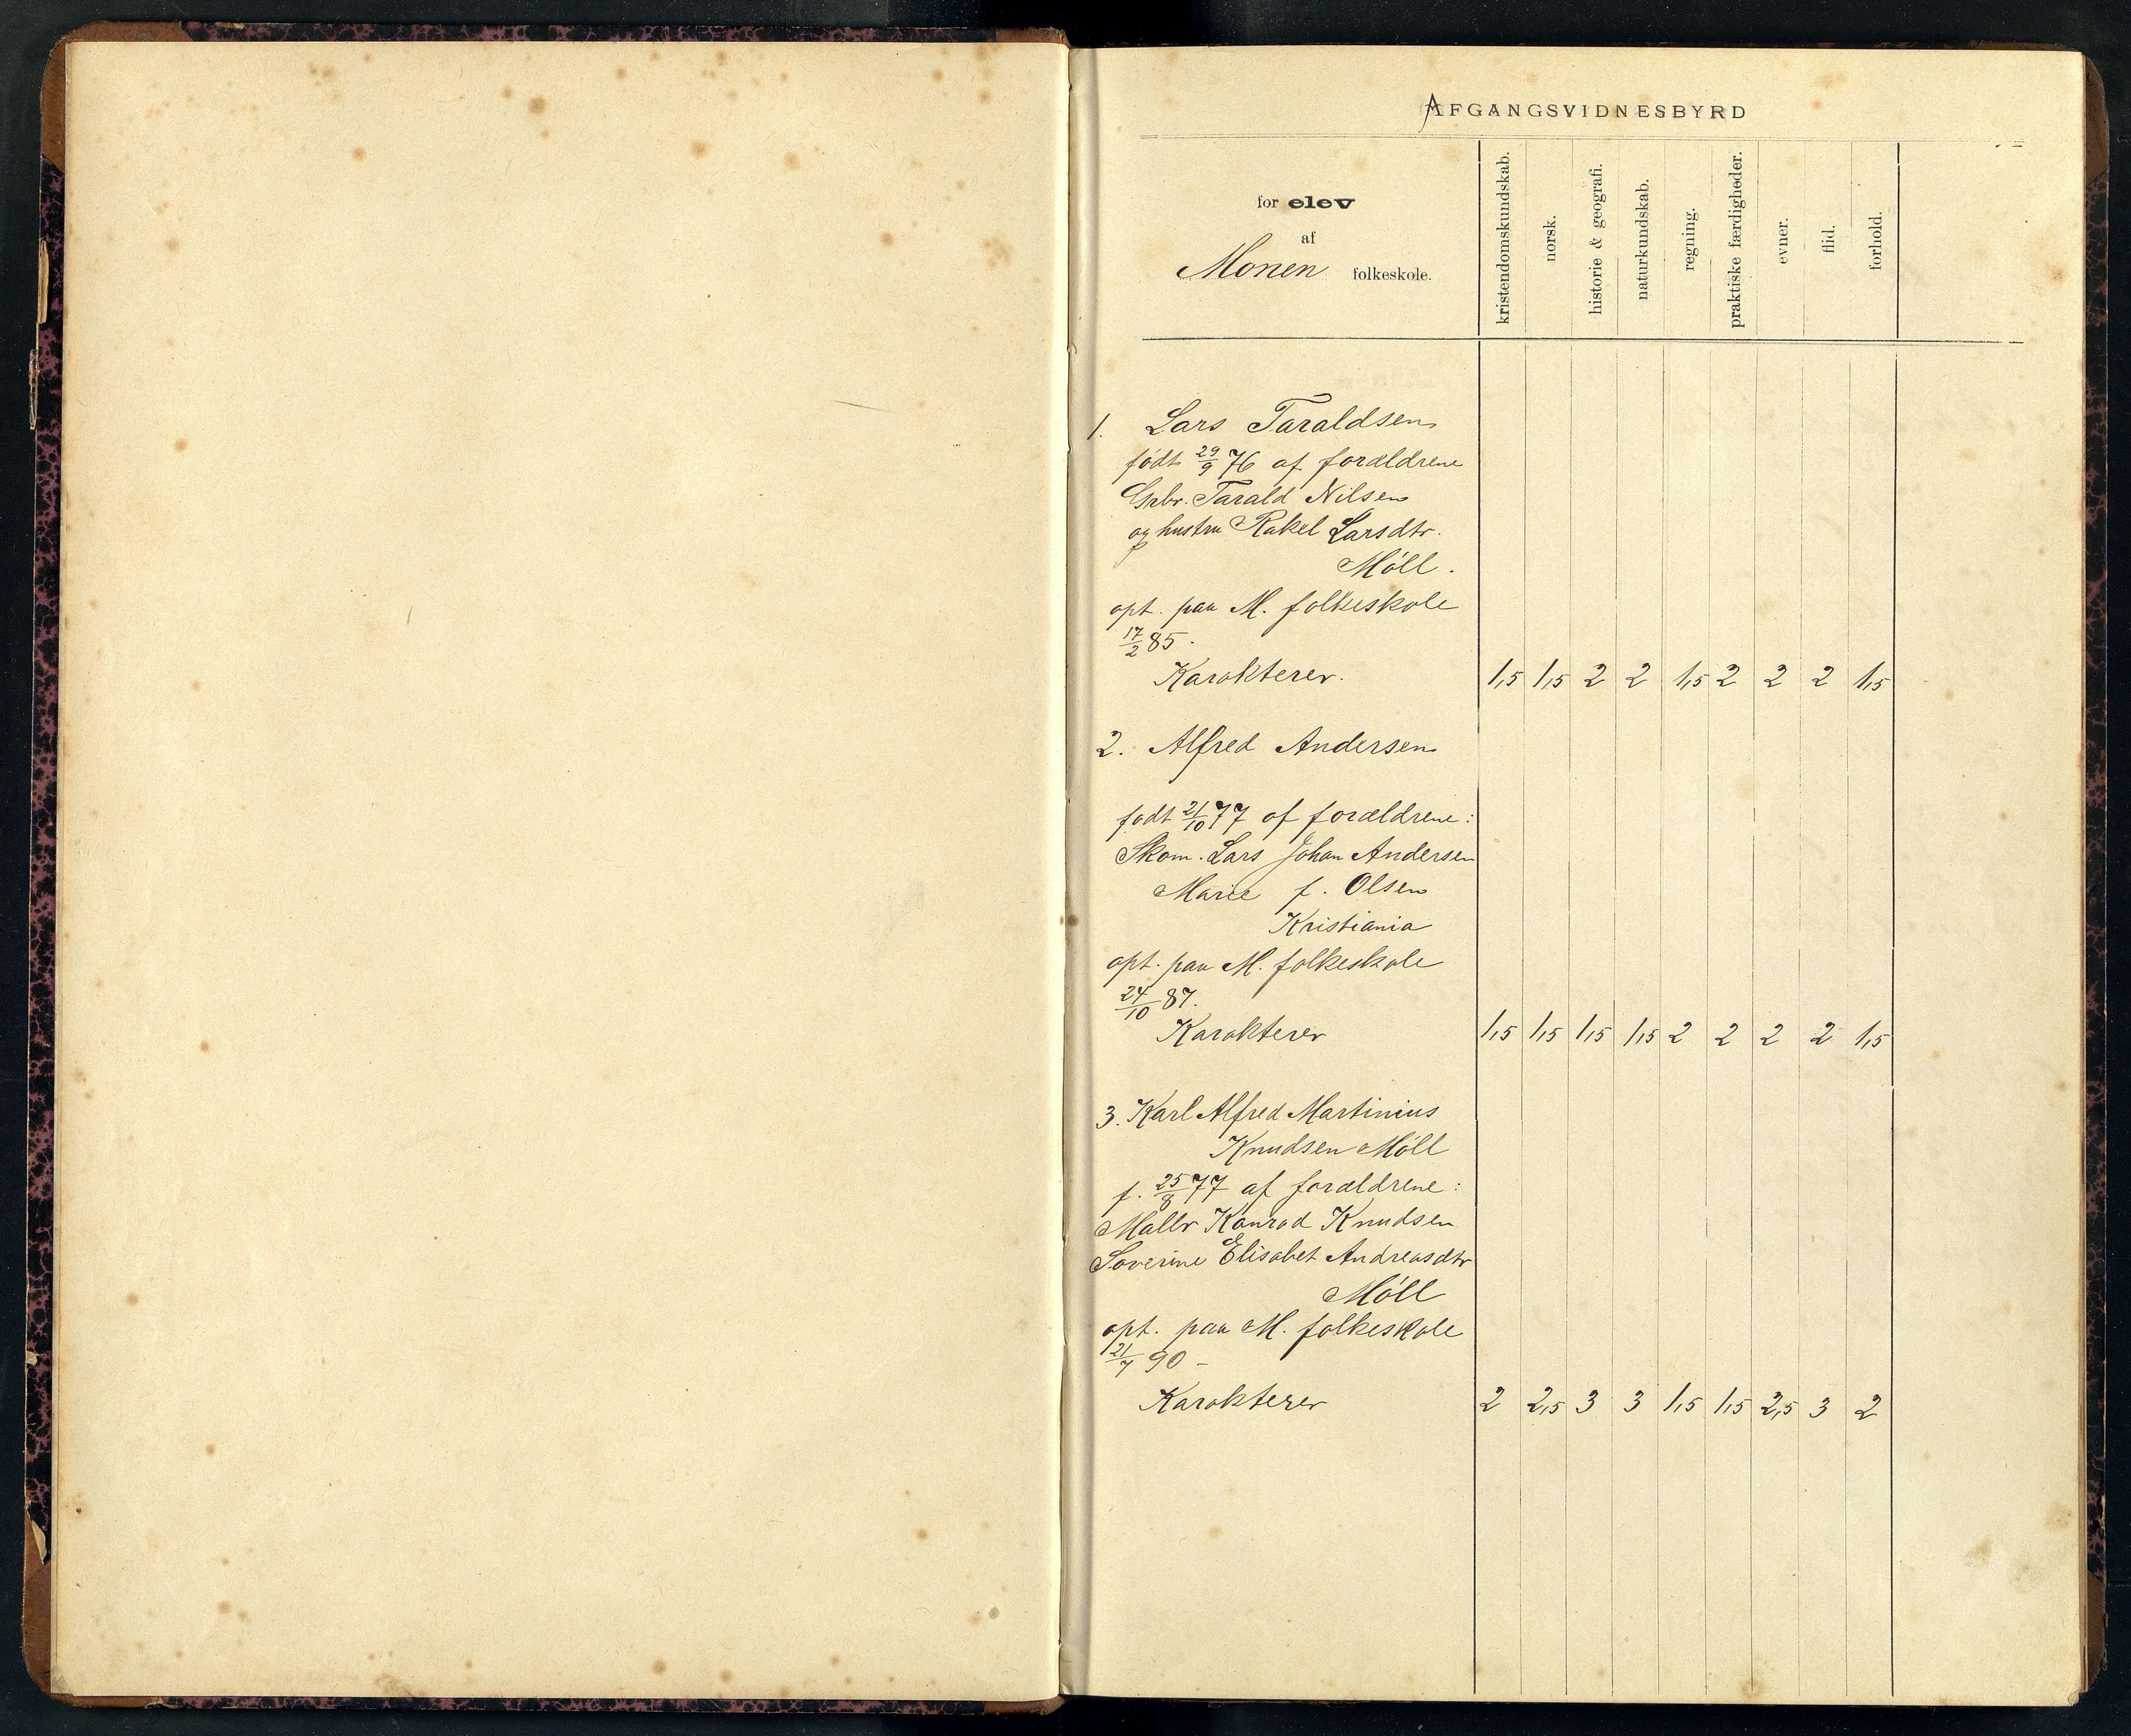 AFGANGSVIDNESBYRD
for elev
af
Monen folkeskole.
kristendomskundskab.
norsk.
historie & geografi.
naturkundskab.
regning.
praktiske færdigheder.
evner.
flid.
forhold.
1. Lars Taraldsen
født 29/9 76 af forældrene
Grbr. Tarald Nilsen
og hustru Rakel Larsdtr.
Móll.
opt. paa M. folkeskole
17/2 85.
Karakterer. 1,5 1,5 2 2 1,5 2 2 2 1,5
2. Alfred Andersen
født 21/10 77 af forældrene:
Skom. Lars Johan Andersen
Marie f. Olsen
Kristiania
opt. paa M. folkeskole
24/10 87.
Karakterer 1,5 1,5 1,5 1,5 2 2 2 2 1,5
3. Karl Alfred Martinius
Knudsen Móll
f. 25/8 77 af forældrene:
Konrad Knudsen
Elisabet Andreasdtr
Móll
opt. paa M. folkeskole
21/7 90 -
Karakterer 2 2,5 3 3 1,5 1,5 2,5 3 2